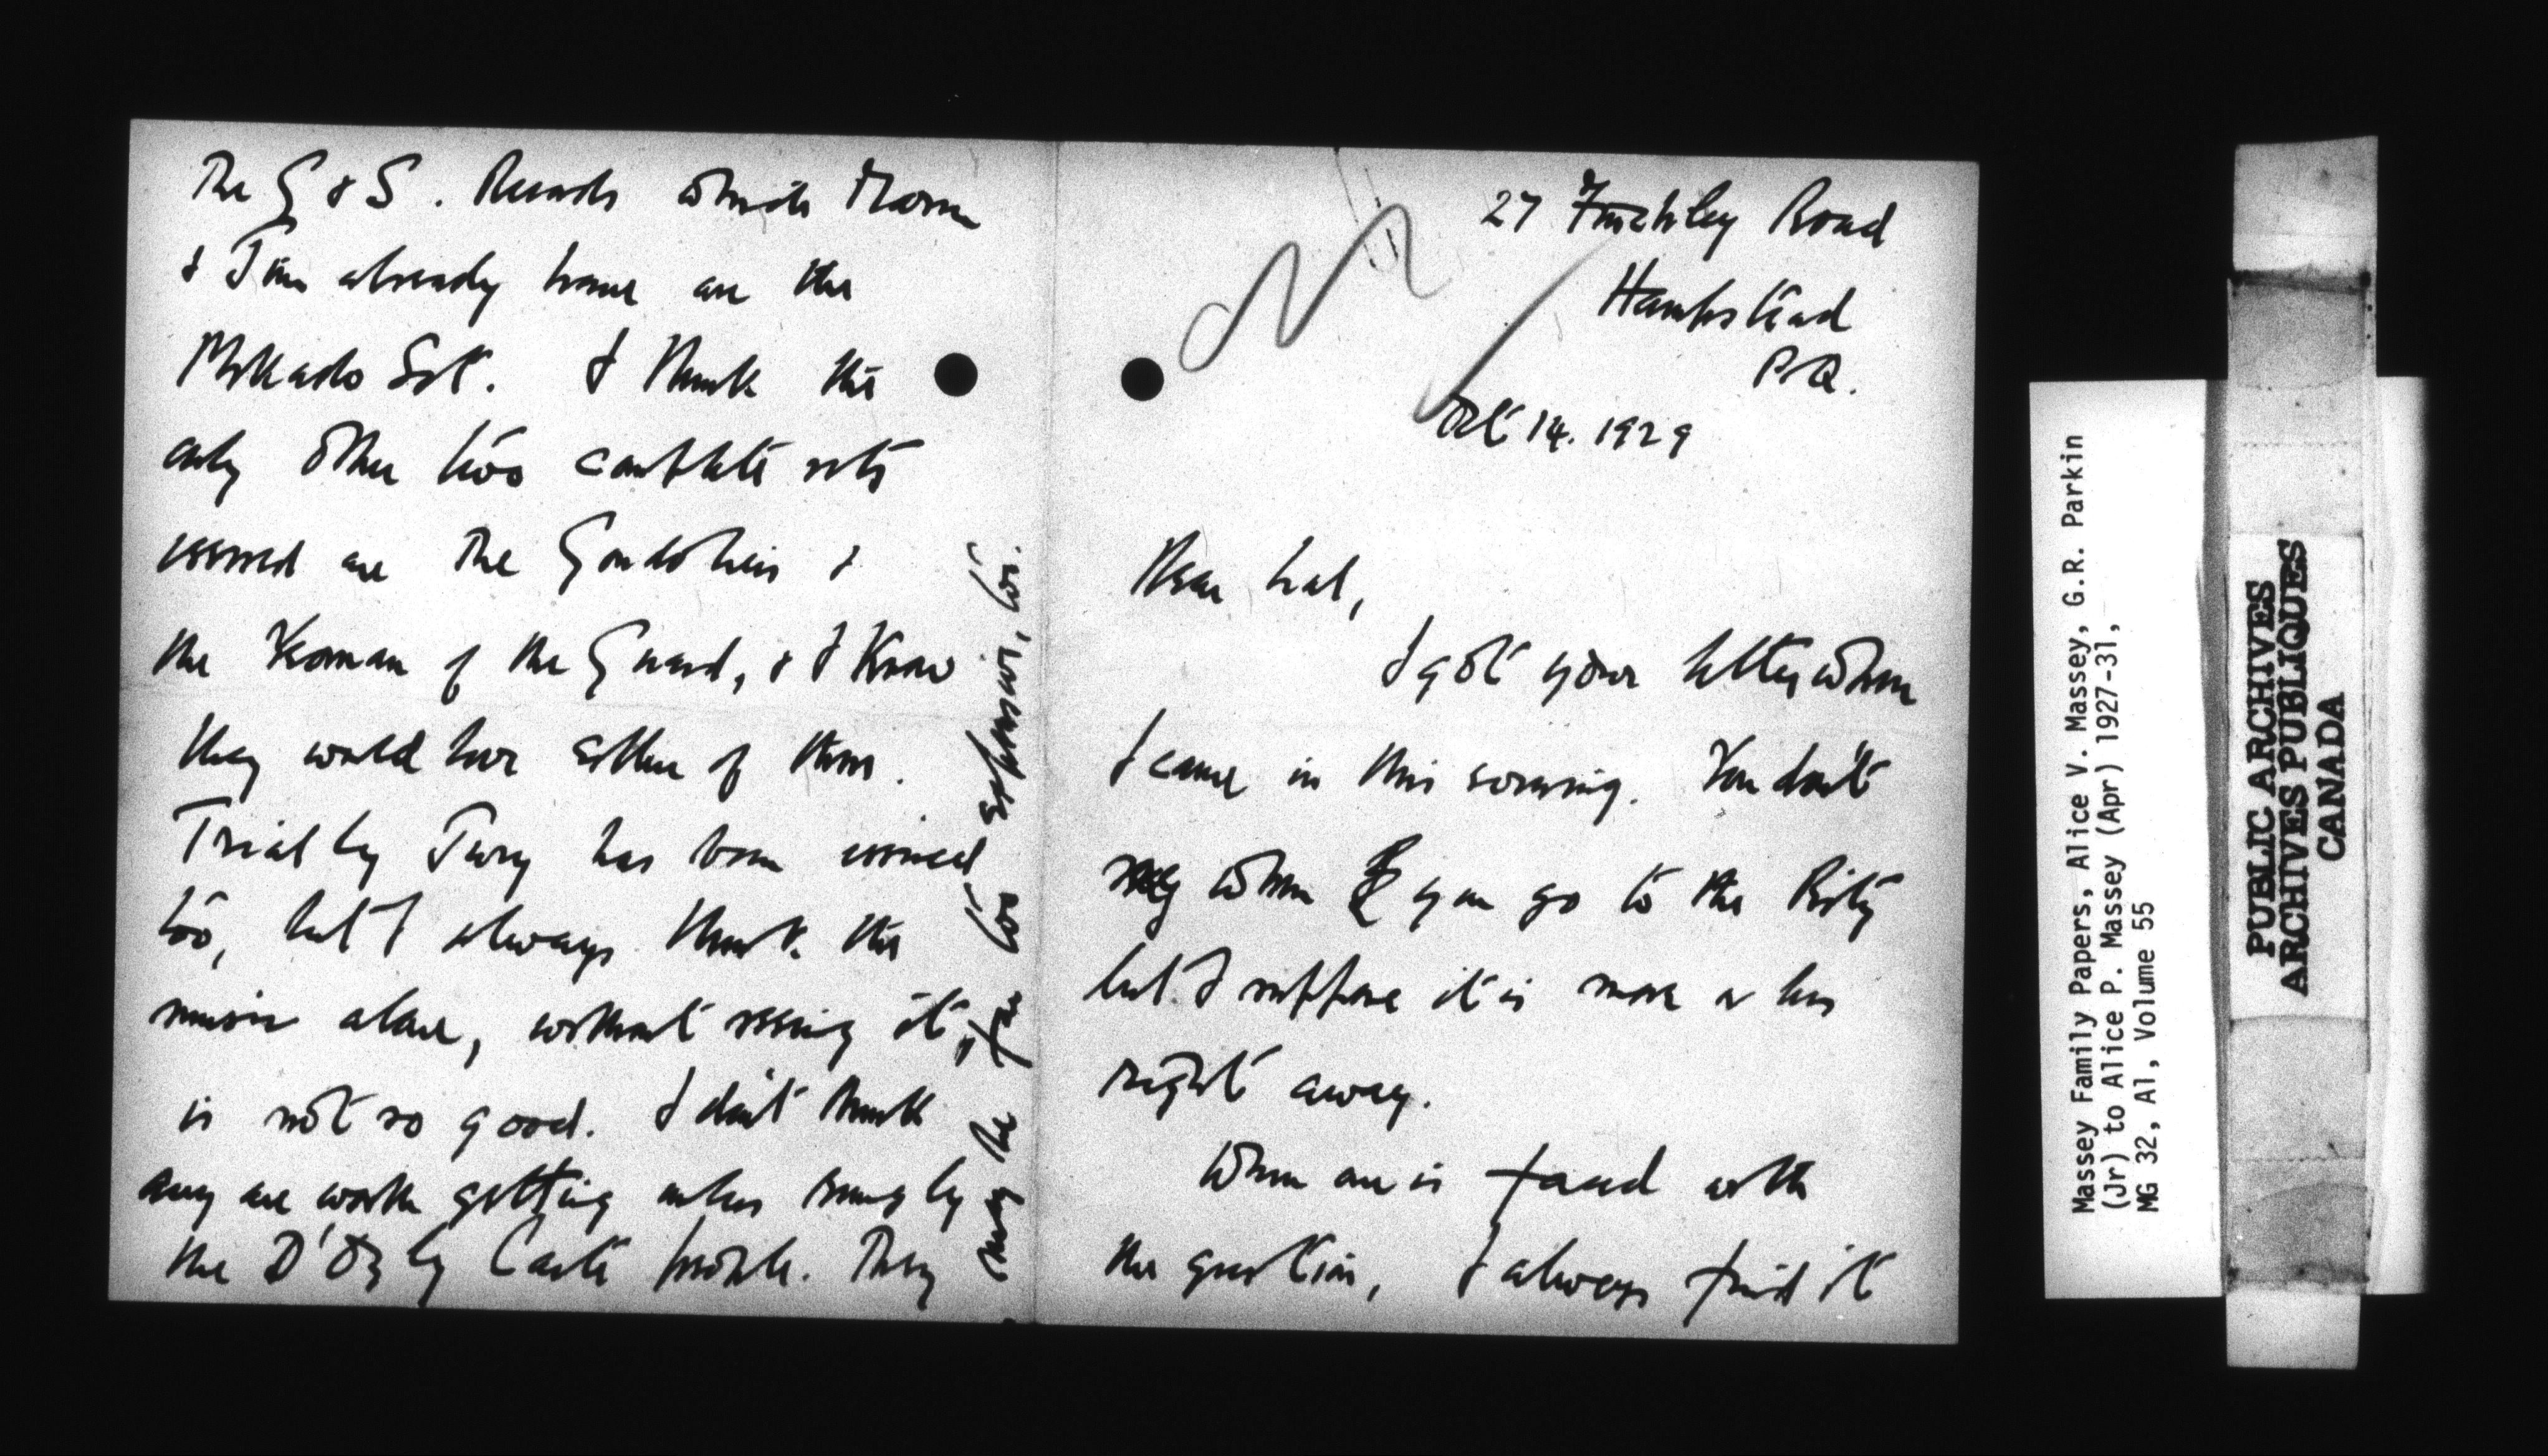 The G & S. Records which Maria
& Jim already have are the
Mikado Set. I think the
only other two complete sets
issued are the Gondoliers &
the Yeoman of the Guard, & I know
they would love either of them.
Trial by Jury has been issued
too, but I always think the
music alone, without seeing it,
is not so good. I don't think
any are worth getting unless sung by
the D'Oyly Carte people. They
may be far too expensive, too.
27 Finchley Road
Hampstead
P.Q.
Oct 14. 1929
Dear Lal,
I got your letter when
I came in this evening. You don't
say when you go to the Ritz
but I suppose it is more or less
right away.
When one is faced with
the question, I always find it
Massey Family Papers, Alice V. Massey, G.R. Parkin
(Jr) to Alice P. Massey (Apr) 1927-31,
MG 32, A1, Volume 55
PUBLIC ARCHIVES
ARCHIVES PUBLIQUES
CANADA